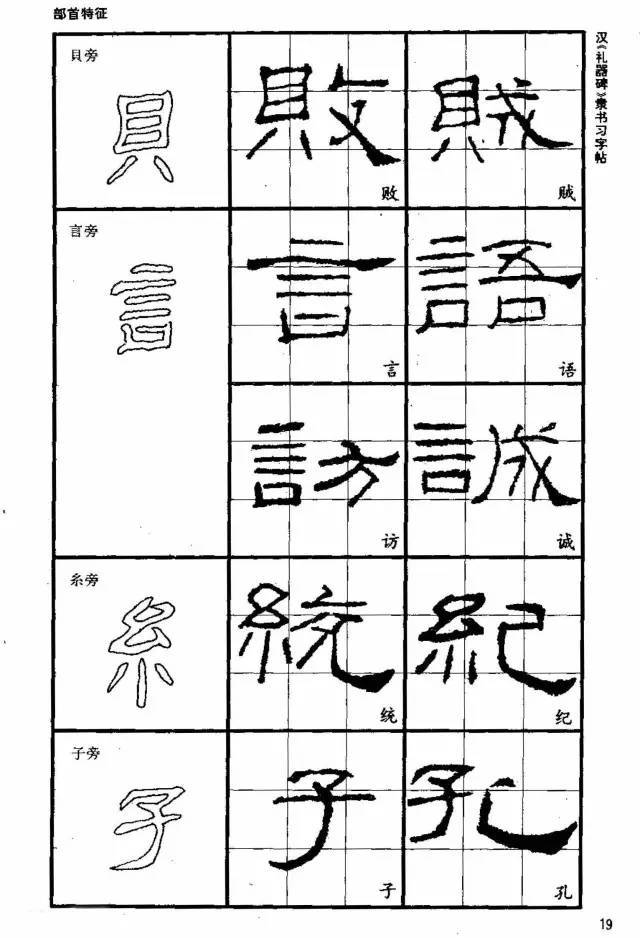 部首特征
汉《礼器碑》隶书习字帖
貝旁
貝
敗 賊
败 贼
言旁
言
言 語
言 语
訪 誠
访 诚
糸旁
糸
統 紀
统 纪
子旁
子
子 孔
子 孔
19